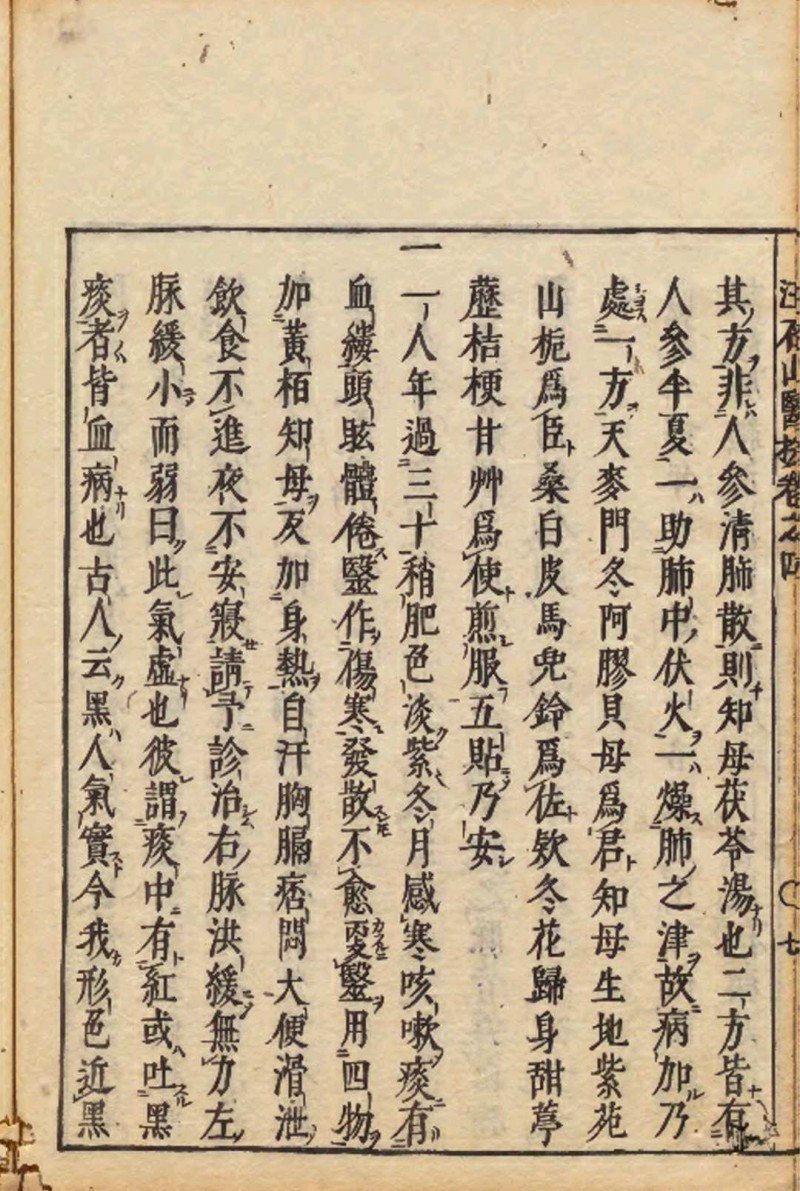 汪石山醫按卷之四
〇七
其方非人參清肺散則知母茯苓湯也二方皆有
人參半夏一助肺中伏火一燥肺之津故病加乃
處一方天麥門冬阿膠貝母爲君知母生地紫苑
山梔爲臣桑白皮馬兜鈴爲佐欵冬花歸身甜葶
藶桔梗甘艸爲使煎服五貼乃安
一一人年過三十稍肥色淡紫冬月感寒咳嗽痰有
血縷頭眩體倦毉作傷寒發散不愈更毉用四物
加黃栢知母反加身熱自汗胸膈痞悶大便滑泄
飲食不進夜不安寢請予診治右脉洪緩無力左
脉緩小而弱曰此氣虛也彼謂痰中有紅或吐黑
痰者皆血病也古人云黑人氣實今我形色近黑